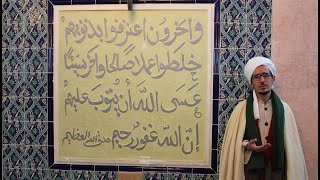 وآخرون اعترفوا بذنوبهم
خلطوا عملا صالحا وآخر سيئا
عسى الله أن يتوب عليهم
إن الله غفور رحيم صدق الله العظيم